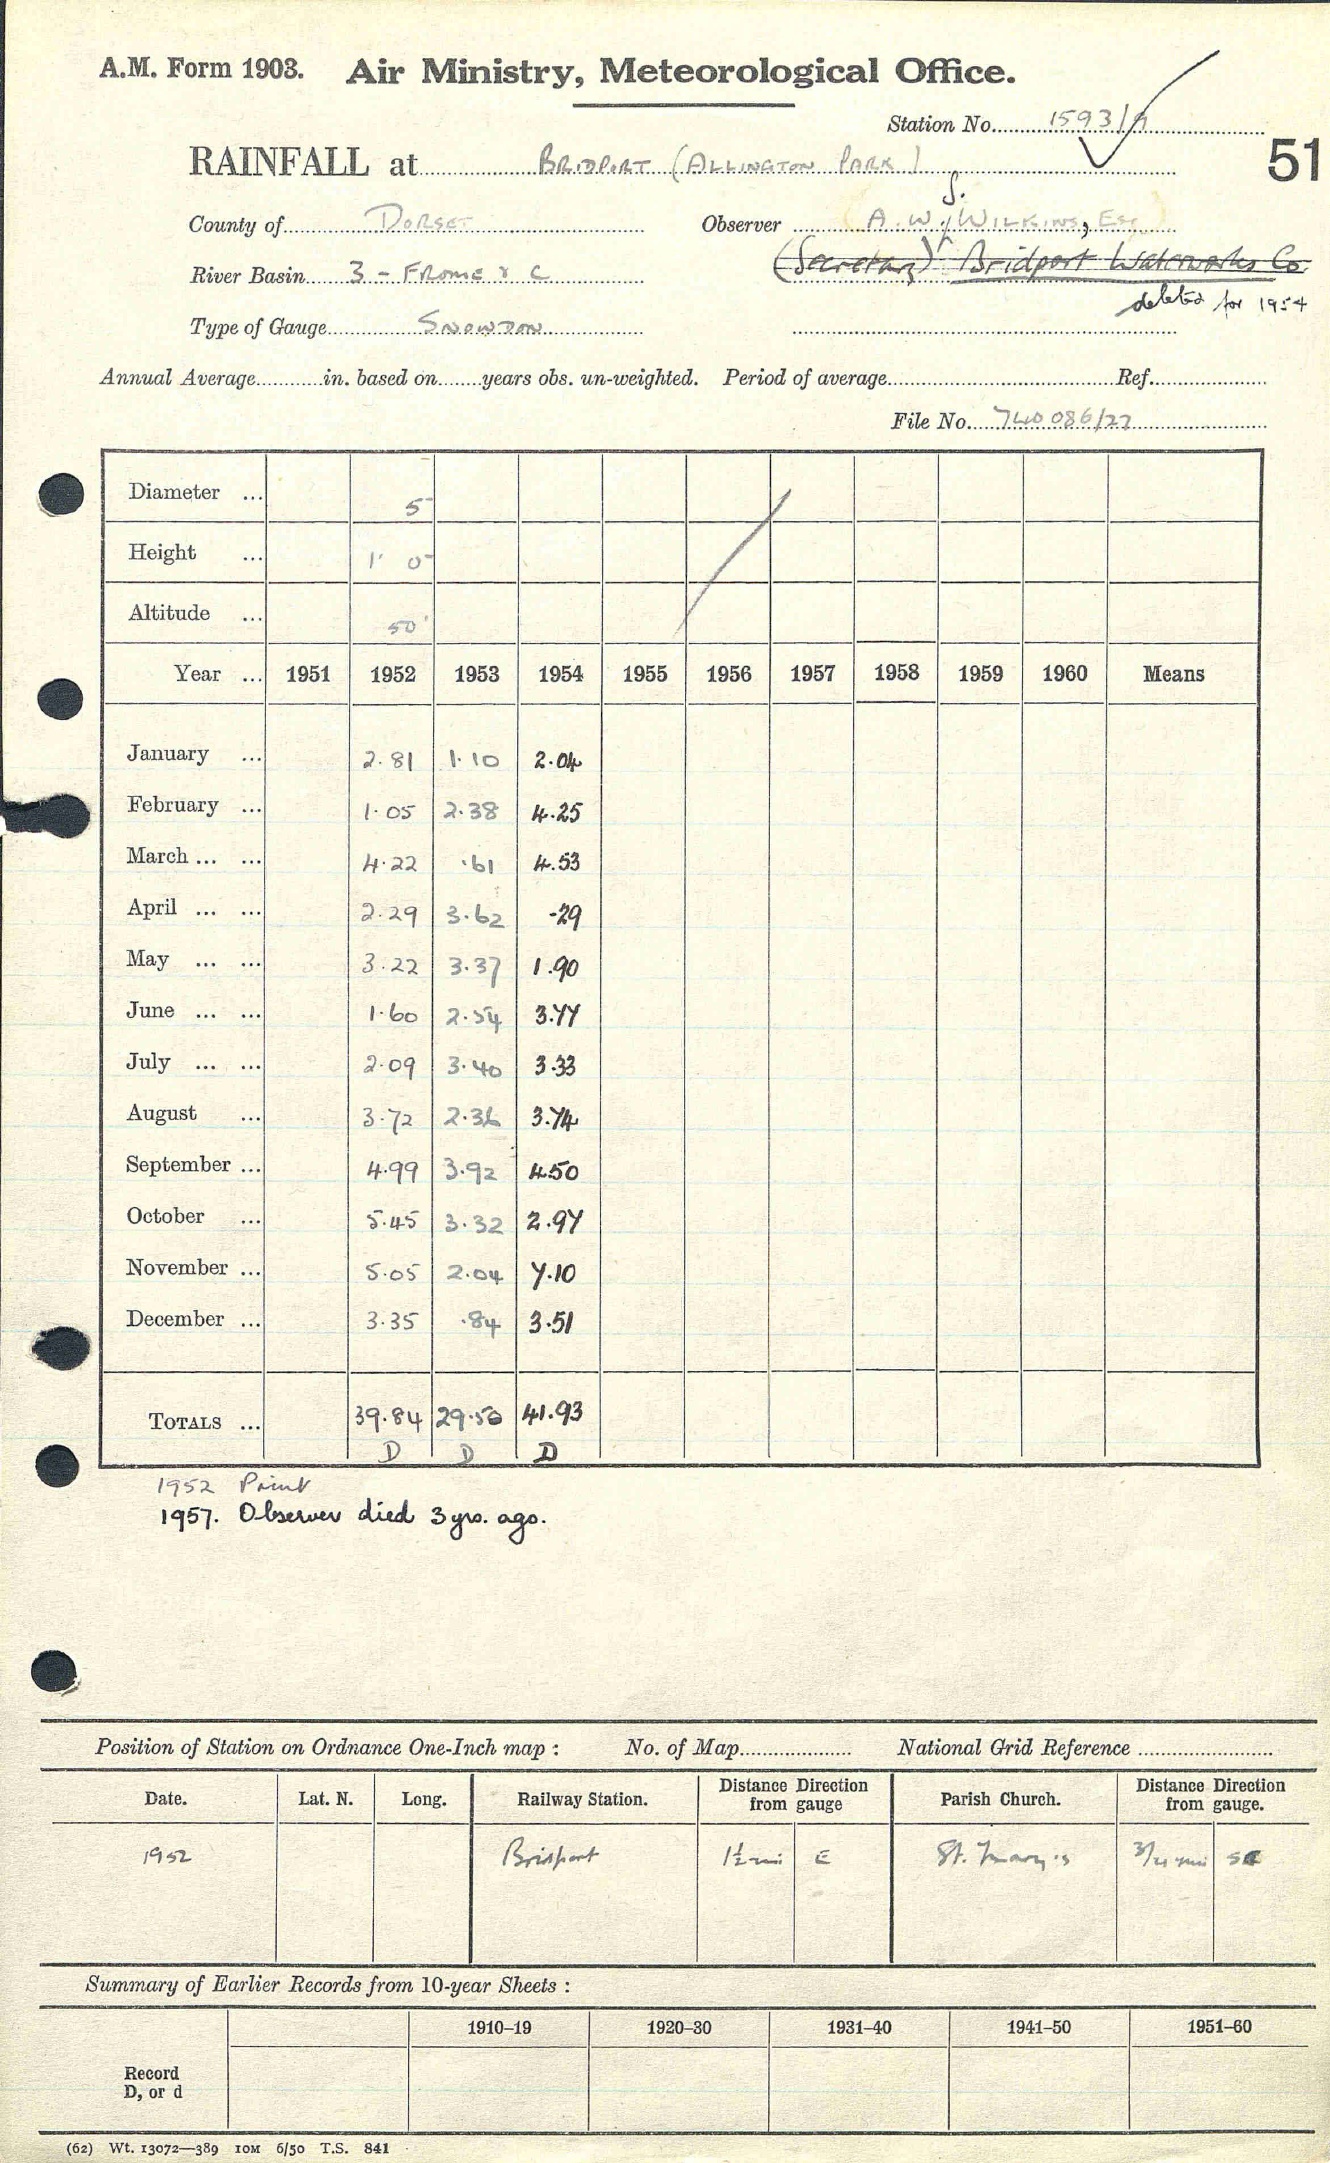 A.M. Form 1903. Air Ministry, Meteorological Office.
Station No. 1593/9
RAINFALL at BRIDPORT (ALLINGTON PARK) 51
County of DORSET Observer A.W.S. WILKINS, ESQ
River Basin 3 - FROME & C (Secretary) Bridport Waterworks Co
deleted for 1954
Type of Gauge SNOWDON
Annual Average in. based on years obs. un-weighted. Period of average Ref.
File No. 740086/22
Diameter ... 5
Height ... 1' 0
Altitude ... 50'
Year ... 1951 1952 1953 1954 1955 1956 1957 1958 1959 1960 Means
January ... 2.81 1.10 2.04
February ... 1.05 2.38 4.25
March ... ... 4.22 .61 4.53
April ... ... 2.29 3.62 .29
May ... ... 3.22 3.37 1.90
June ... ... 1.60 2.54 3.77
July ... ... 2.09 3.40 3.33
August ... 3.72 2.36 3.74
September ... 4.99 3.92 4.50
October ... 5.45 3.32 2.97
November ... 5.05 2.04 7.10
December ... 3.35 .84 3.51
TOTALS ... 39.84 29.50 41.93
D D D
1952 Print
1957. Observer died 3 yrs. ago.
Position of Station on Ordnance One-Inch map : No. of Map National Grid Reference
Date. Lat. N. Long. Railway Station. Distance Direction from gauge Parish Church. Distance Direction from gauge.
1952 Bridport 1½ mi E St. Mary's 3/4 mi SE
Summary of Earlier Records from 10-year Sheets :
1910–19 1920–30 1931–40 1941–50 1951–60
Record
D, or d
(62) Wt. 13072—389 10M 6/50 T.S. 841